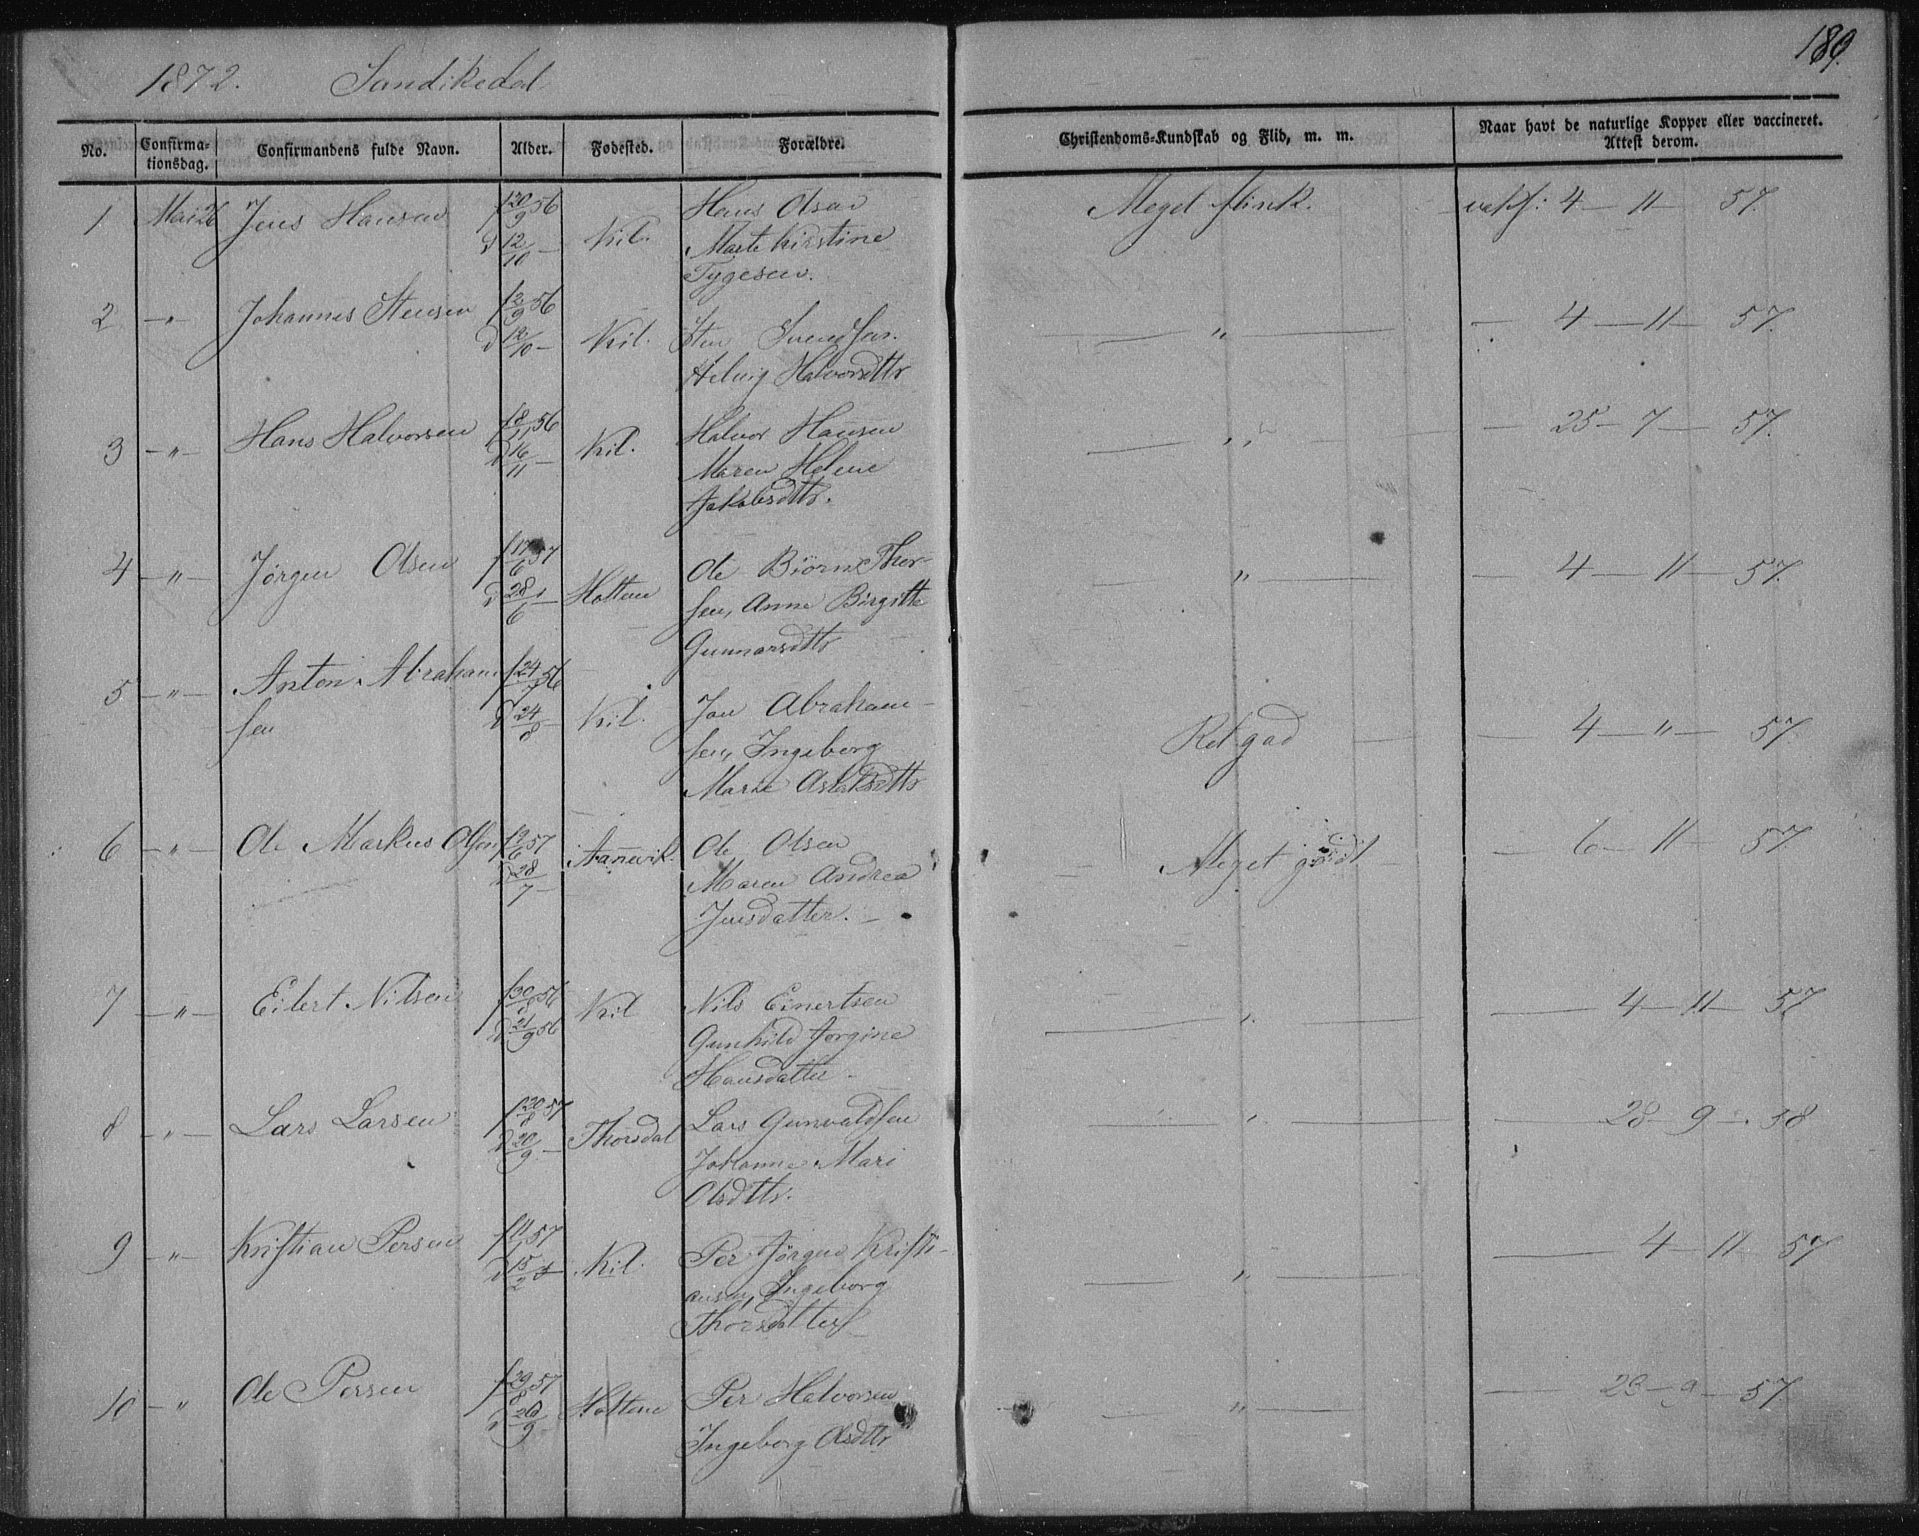 1872. Sandikedal
189.
No. Confirmationsdag. Confirmandens fulde Navn. Alder. Fødested. Forældre. Christendoms-Kundskab og Flid, m. m. Naar havt de naturlige Kopper eller vaccineret. Attest derom.
1 Mai 26 Jens Hansen f 20/9 56 Hans Olsen Meget flink. vakc: 4 — 11 — 57.
d 12/10 — Kil. Marte Kirstine
Tygesen.
2 — " Johannes Stensen f 2/9 56
d 12/10 — Kil. Sten Svendsen. — " — — 4 — 11 — 57.
Helvig Halvorsdttr
3 — " — Hans Halvorsen f 8/11 56 Kil. Halvor Hansen — " — — 25 — 7 — 57.
d 16/11 — Maren Helene
Jakobsdttr.
4 — " — Jørgen Olsen f 17/6 57 Ole Biörn Thor-
d 28/6 — Holtene sen, Anne Birgitte — " — — 4 — 11 — 57.
Gunnarsdttr
5 — " — Anton Abraham f 24/7 56
sen d 24/8 — Kil. Jan Abraham-
sen, Ingeborg Ret god — — 4 — " — 57.
Marie Aslaksdttr
6 — " — Ole Markus Olsen f 2/6 57 Aanevik. Ole Olsen — 6 — 11 — 57.
d 28/7 — Maren Andrea — Meget godt —
Jensdatter. —
7 — " — Eilert Nilsen f 30/8 56 Kil Nils Einertsen — 4 — 11 — 57
d 21/9 56 Gunhild Jørgine — " —
Hansdatter —
8 — " — Lars Larsen f 20/8 57 Lars Gunvaldsen — " — — 28 — 9 — 58
d 20/9 — Thorsdal Johanne Mari
Olsdttr.
9 — " Kristian Persen 57
d 15/2 Kil. Per Jørgen Kristi- — 4 — 11 — 57
ansen, Ingeborg — " —
Thorsdatter
10 — " Ole Persen f 29/8 57 Holtene Per Halvorsen — " — — 23 — 9 — 57.
d 20/9 — Ingeborg Olsdttr